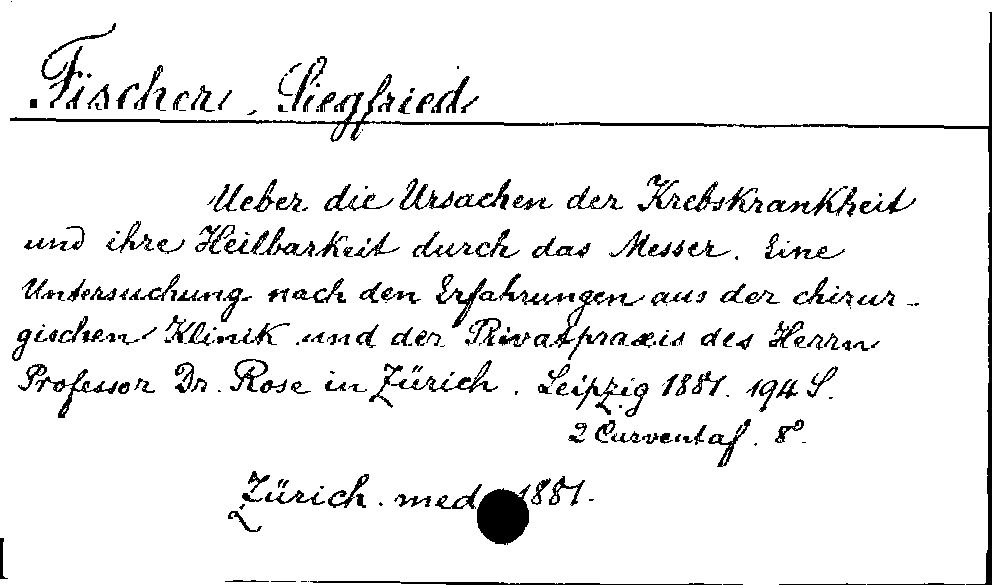 Fischer, Siegfried
Ueber die Ursachen der Krebskrankheit
und ihre Heilbarkeit durch das Messer. Eine
Untersuchung nach den Erfahrungen aus der chirur-
gischen Klinik und der Privatpraxis des Herrn
Professor Dr. Rose in Zürich. Leipzig 1881. 194 S.
2 Curventaf. 8°.
Zürich. med 1881.